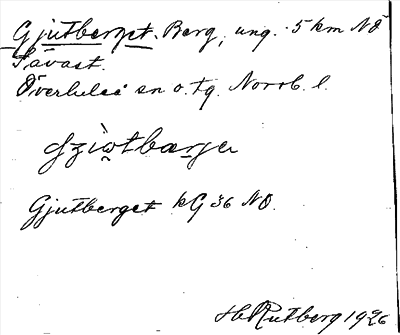 Gjutberget. Berg, ung. 5 km NÖ
Sävast.
Överluleå sn o. tg. Norrb. l.
Gjutberget kG 36 NO.
H. Rutberg 1926